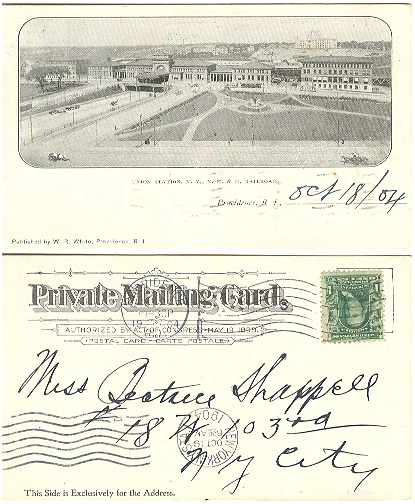 UNION STATION, N. Y., N. H. & H. RAILROAD,
Providence, R. I., Oct 18/04
Published by W. R. White, Providence, R. I.
Private Mailing Card.
AUTHORIZED BY ACT OF CONGRESS-MAY 19, 1898.
(POSTAL CARD - CARTE POSTALE)
Miss Beatrice Shappell
18 W 103rd
N Y City
NEW YORK
OCT 19
1904
This Side is Exclusively for the Address.